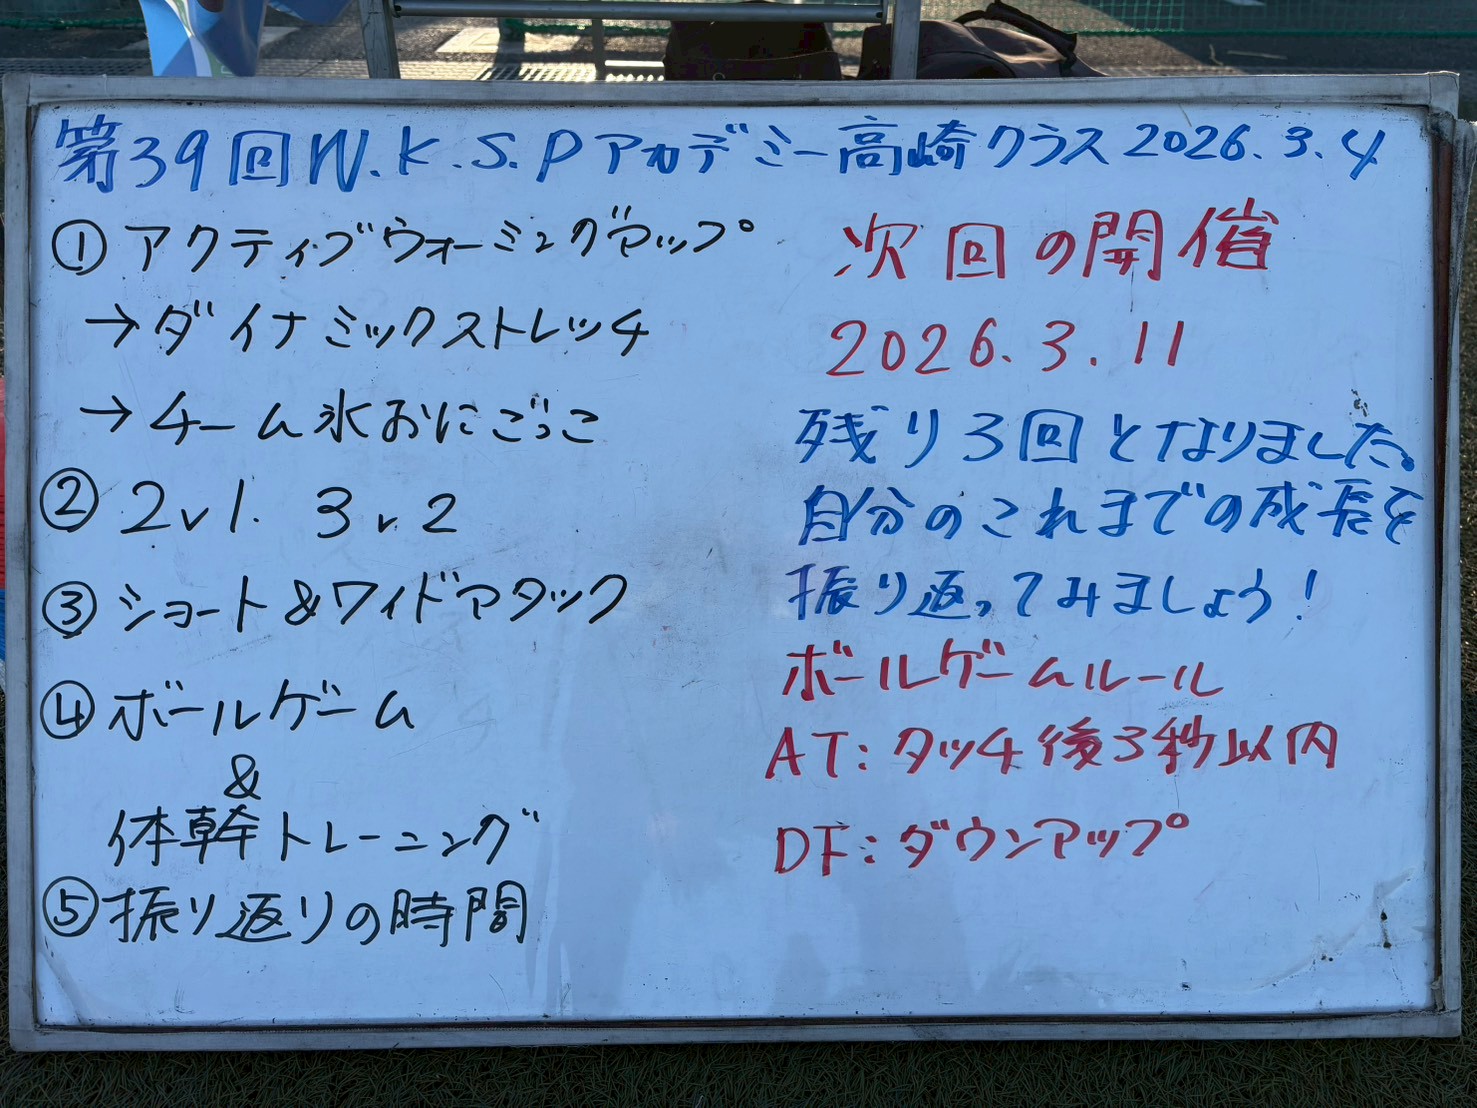 第39回W.K.S.Pアカデミー高崎クラス2026.3.4
①アクティブウォーミングアップ
→ダイナミックストレッチ
→チーム氷おにごっこ
②2v1. 3v2
③ショート&ワイドアタック
④ボールゲーム
&
体幹トレーニング
⑤振り返りの時間
次回の開催
2026.3.11
残り3回となりました。
自分のこれまでの成長を
振り返ってみましょう!
ボールゲームルール
AT:タッチ後3秒以内
DF:ダウンアップ